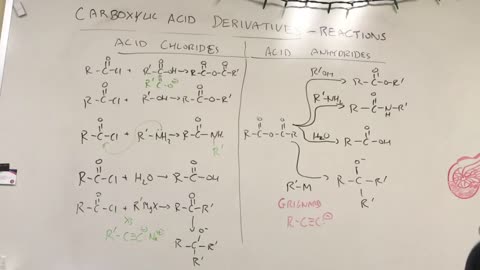 CARBOXYLIC ACID DERIVATIVES - REACTIONS
ACID CHLORIDES
R-C-Cl + R'-C-OH → R-C-O-C-R'
R'-C-O⊖
R-C-Cl + R'-OH → R-C-O-R'
R-C-Cl + R'-NH₂ → R-C-NH
R'
R-C-Cl + H₂O → R-C-OH
R-C-Cl + R'MgX → R-C-R'
R'-C≡C⊖ Na⊕
O⊖
R-C-R'
R'
ACID ANHYDRIDES
R-C-O-C-R
R'OH
R-C-O-R'
R'-NH₂
R-C-N-R'
H
H₂O
R-C-OH
O⁻
R-C-R'
R'
R'-M
GRIGNARD
R-C≡C:⊖